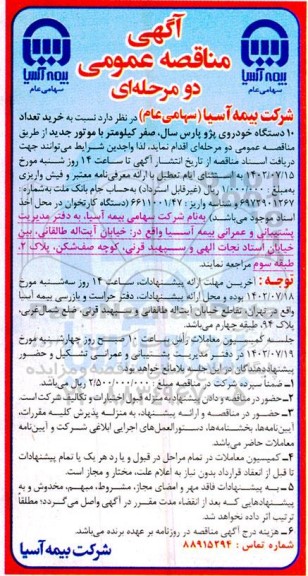 آگهی
مناقصه عمومی
دو مرحله‌ای
بیمه آسیا
سهامی عام
بیمه آسیا
سهامی عام
شرکت بیمه آسیا (سهامی عام) در نظر دارد نسبت به خرید تعداد
۱۰ دستگاه خودروی پژو پارس سال، صفر کیلومتر با موتور جدید از طریق
مناقصه عمومی دو مرحله‌ای اقدام نماید، لذا واجدین شرایط می‌توانند جهت
دریافت اسناد مناقصه از تاریخ انتشار آگهی تا ساعت ۱۴ روز شنبه مورخ
۱۴۰۲/۰۷/۱۵ به استثنای ایام تعطیل با ارائه معرفی‌نامه معتبر و فیش واریزی
به مبلغ ۱/۰۰۰/۰۰۰ ریال (غیرقابل استرداد) به‌حساب جام بانک ملت به‌شماره:
شناسه واریز: (دستگاه کارتخوان در محل اخذ
اسناد موجود می‌باشد) به‌نام شرکت سهامی بیمه آسیا، به دفتر مدیریت
پشتیبانی و عمرانی بیمه آسیا واقع در: خیابان آیت‌اله طالقانی، بین
خیابان استاد نجات الهی و سپهبد قرنی، کوچه صف‌شکن، پلاک ۲،
طبقه سوم مراجعه نمایند.
توجه: آخرین مهلت ارائه پیشنهادات، ساعت ۱۴ روز سه‌شنبه مورخ
۱۴۰۲/۰۷/۱۸ بوده و محل ارائه پیشنهادات، دفتر حراست و بازرسی بیمه آسیا
واقع در تهران، تقاطع خیابان آیت‌اله طالقانی و سپهبد قرنی، ضلع شمال‌غربی،
پلاک ۹۴، طبقه چهارم می‌باشد.
جلسه کمیسیون معاملات رأس ساعت ۱۰ صبح روز چهارشنبه مورخ
۱۴۰۲/۰۷/۱۹ در دفتر مدیریت پشتیبانی و عمرانی تشکیل و حضور
پیشنهاددهندگان در این جلسه بلامانع خواهد بود.
۱- ضمناً سپرده شرکت در مناقصه مبلغ ۲/۵۰۰/۰۰۰/۰۰۰ ریال می‌باشد.
۲- حضور در مناقصه و دادن پیشنهاد به منزله قبول اختیارات و تکالیف شرکت است.
۳- حضور در مناقصه و ارائه پیشنهاد، به منزله پذیرش کلیه مقررات،
آیین‌نامه‌ها، بخشنامه‌ها، دستورالعمل‌های اجرایی ابلاغی شرکت و آیین‌نامه
معاملات حاضر می‌باشد.
۴- کمیسیون معاملات در تمام مراحل در قبول و یا رد هر یک یا تمام پیشنهادات
تا قبل از انعقاد قرارداد بدون نیاز به اعلام علت، مختار و مجاز است.
۵- به پیشنهادات فاقد مهر و امضای مجاز، مشروط، مبهم، مخدوش و به
پیشنهادهایی که بعد از انقضاء مدت مقرر در آگهی واصل می‌گردد؛ مطلقاً
ترتیب اثر داده نخواهد شد.
۶- هزینه درج آگهی مناقصه در روزنامه بر عهده برنده می‌باشد.
شماره تماس: ۸۸۹۱۵۲۹۴
شرکت بیمه آسیا